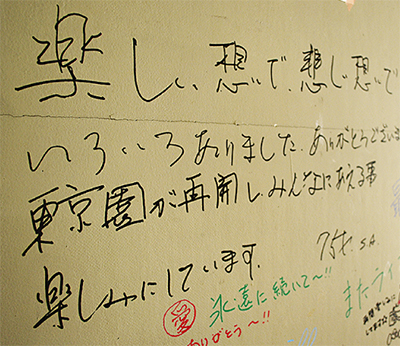 楽しい想いで、悲しい想いで
いろいろありました、ありがとうございま
東京園が再開し、みんなにあえる事
楽しみにしています。
75才 S.A.
愛 永遠に続いて〜!!
ありがとう〜!!
またライ